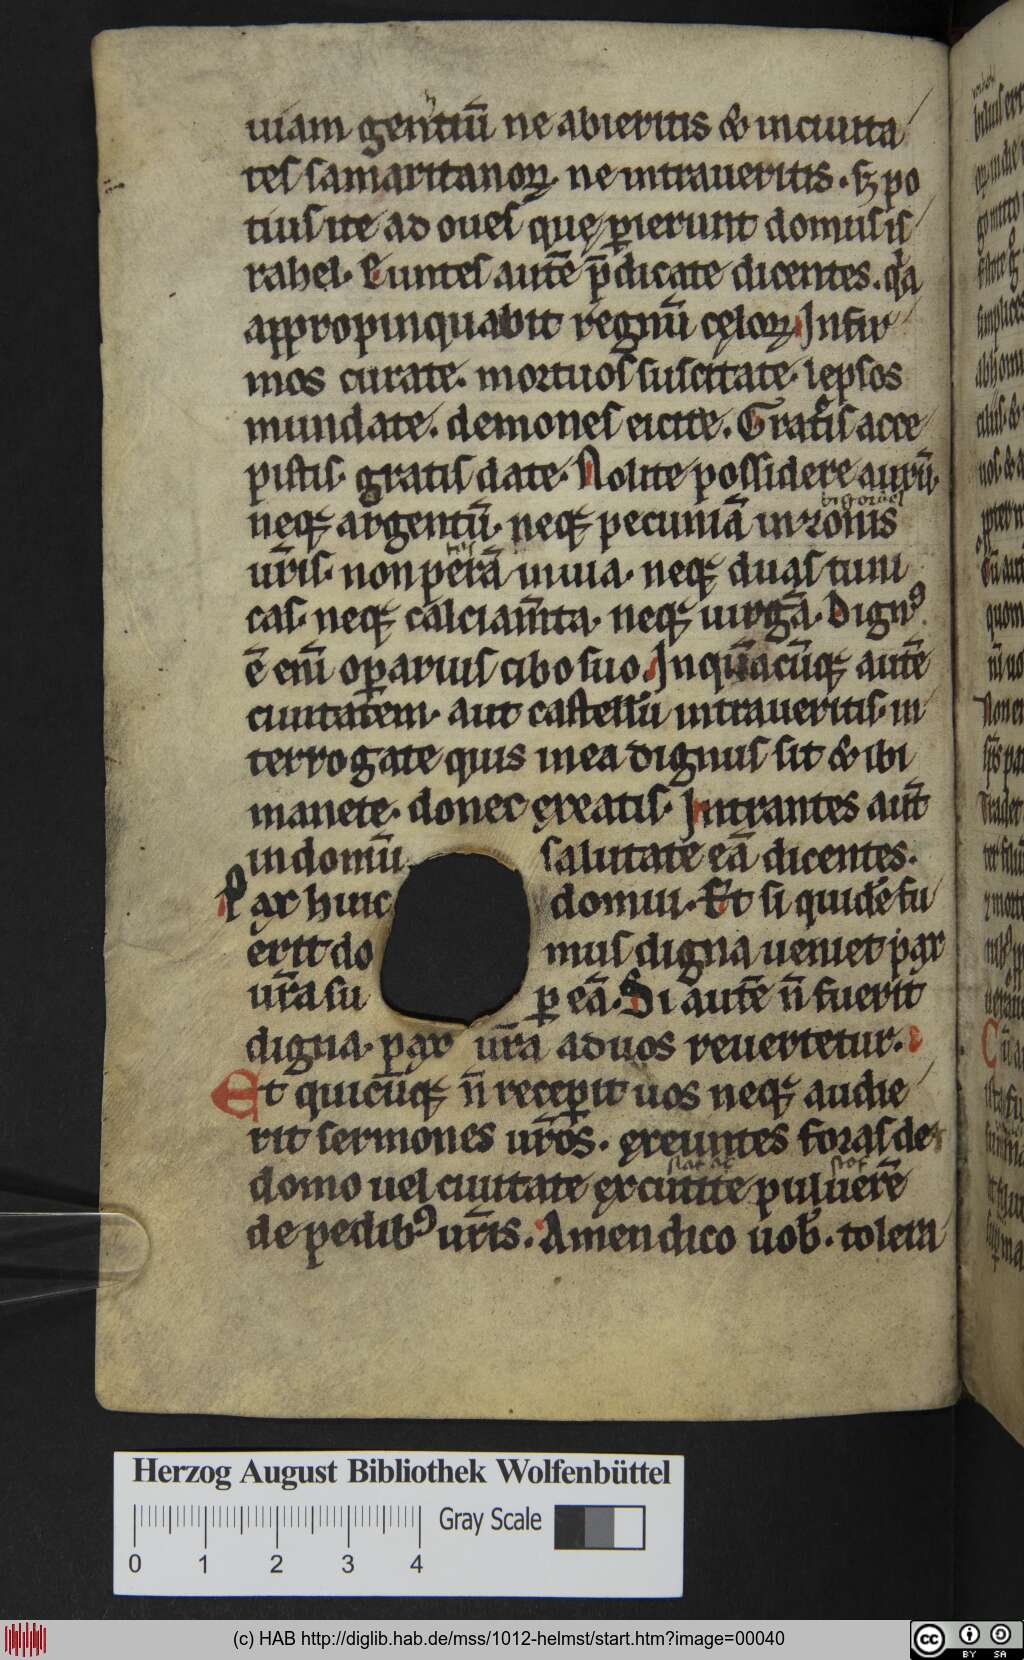 uiam gentiū ne abieritis & in ciuita
tes samaritanoꝝ. ne intraueritis. sꝫ po
tius ite ad oues que ꝑierunt domus is
rahel. Euntes autē p̄dicate dicentes. qͣa
appropinquabit regnū cęloꝝ. Infir
mos curate. mortuos suscitate. lepsos
mundate. demones eicite. Gratis acce
pistis. gratis date. Nolite possidere aurū.
neqꝫ argentū. neqꝫ pecuniā in zonis
ur̄is. non perā in uia. neqꝫ duas tuni
cas. neqꝫ calciam̄ta. neqꝫ uirgā. Dignꝰ
ē enī oꝑarius cibo suo. In quācūqꝫ autē
ciuitatem. aut castellū intraueritis. in
terrogate quis in ea dignus sit & ibi
manete. donec exeatis. Intrantes aut̄
in domū salutate eā dicentes.
Pax huic domui. Et si quidē fu
erit domus digna ueniet pax
ur̄a suꝑ eā. Si autē n̄ fuerit
digna. pax ur̄a ad uos reuertetur.
Et quicūqꝫ n̄ receꝑit uos neqꝫ audie
rit sermones ur̄os. exeuntes foras de
domo uel ciuitate excutite puluerē
de pedibꝰ ur̄is. Amen dico uob̄. tolera
Herzog August Bibliothek Wolfenbüttel
Gray Scale
0 1 2 3 4
(c) HAB http://diglib.hab.de/mss/1012-helmst/start.htm?image=00040
cc BY SA